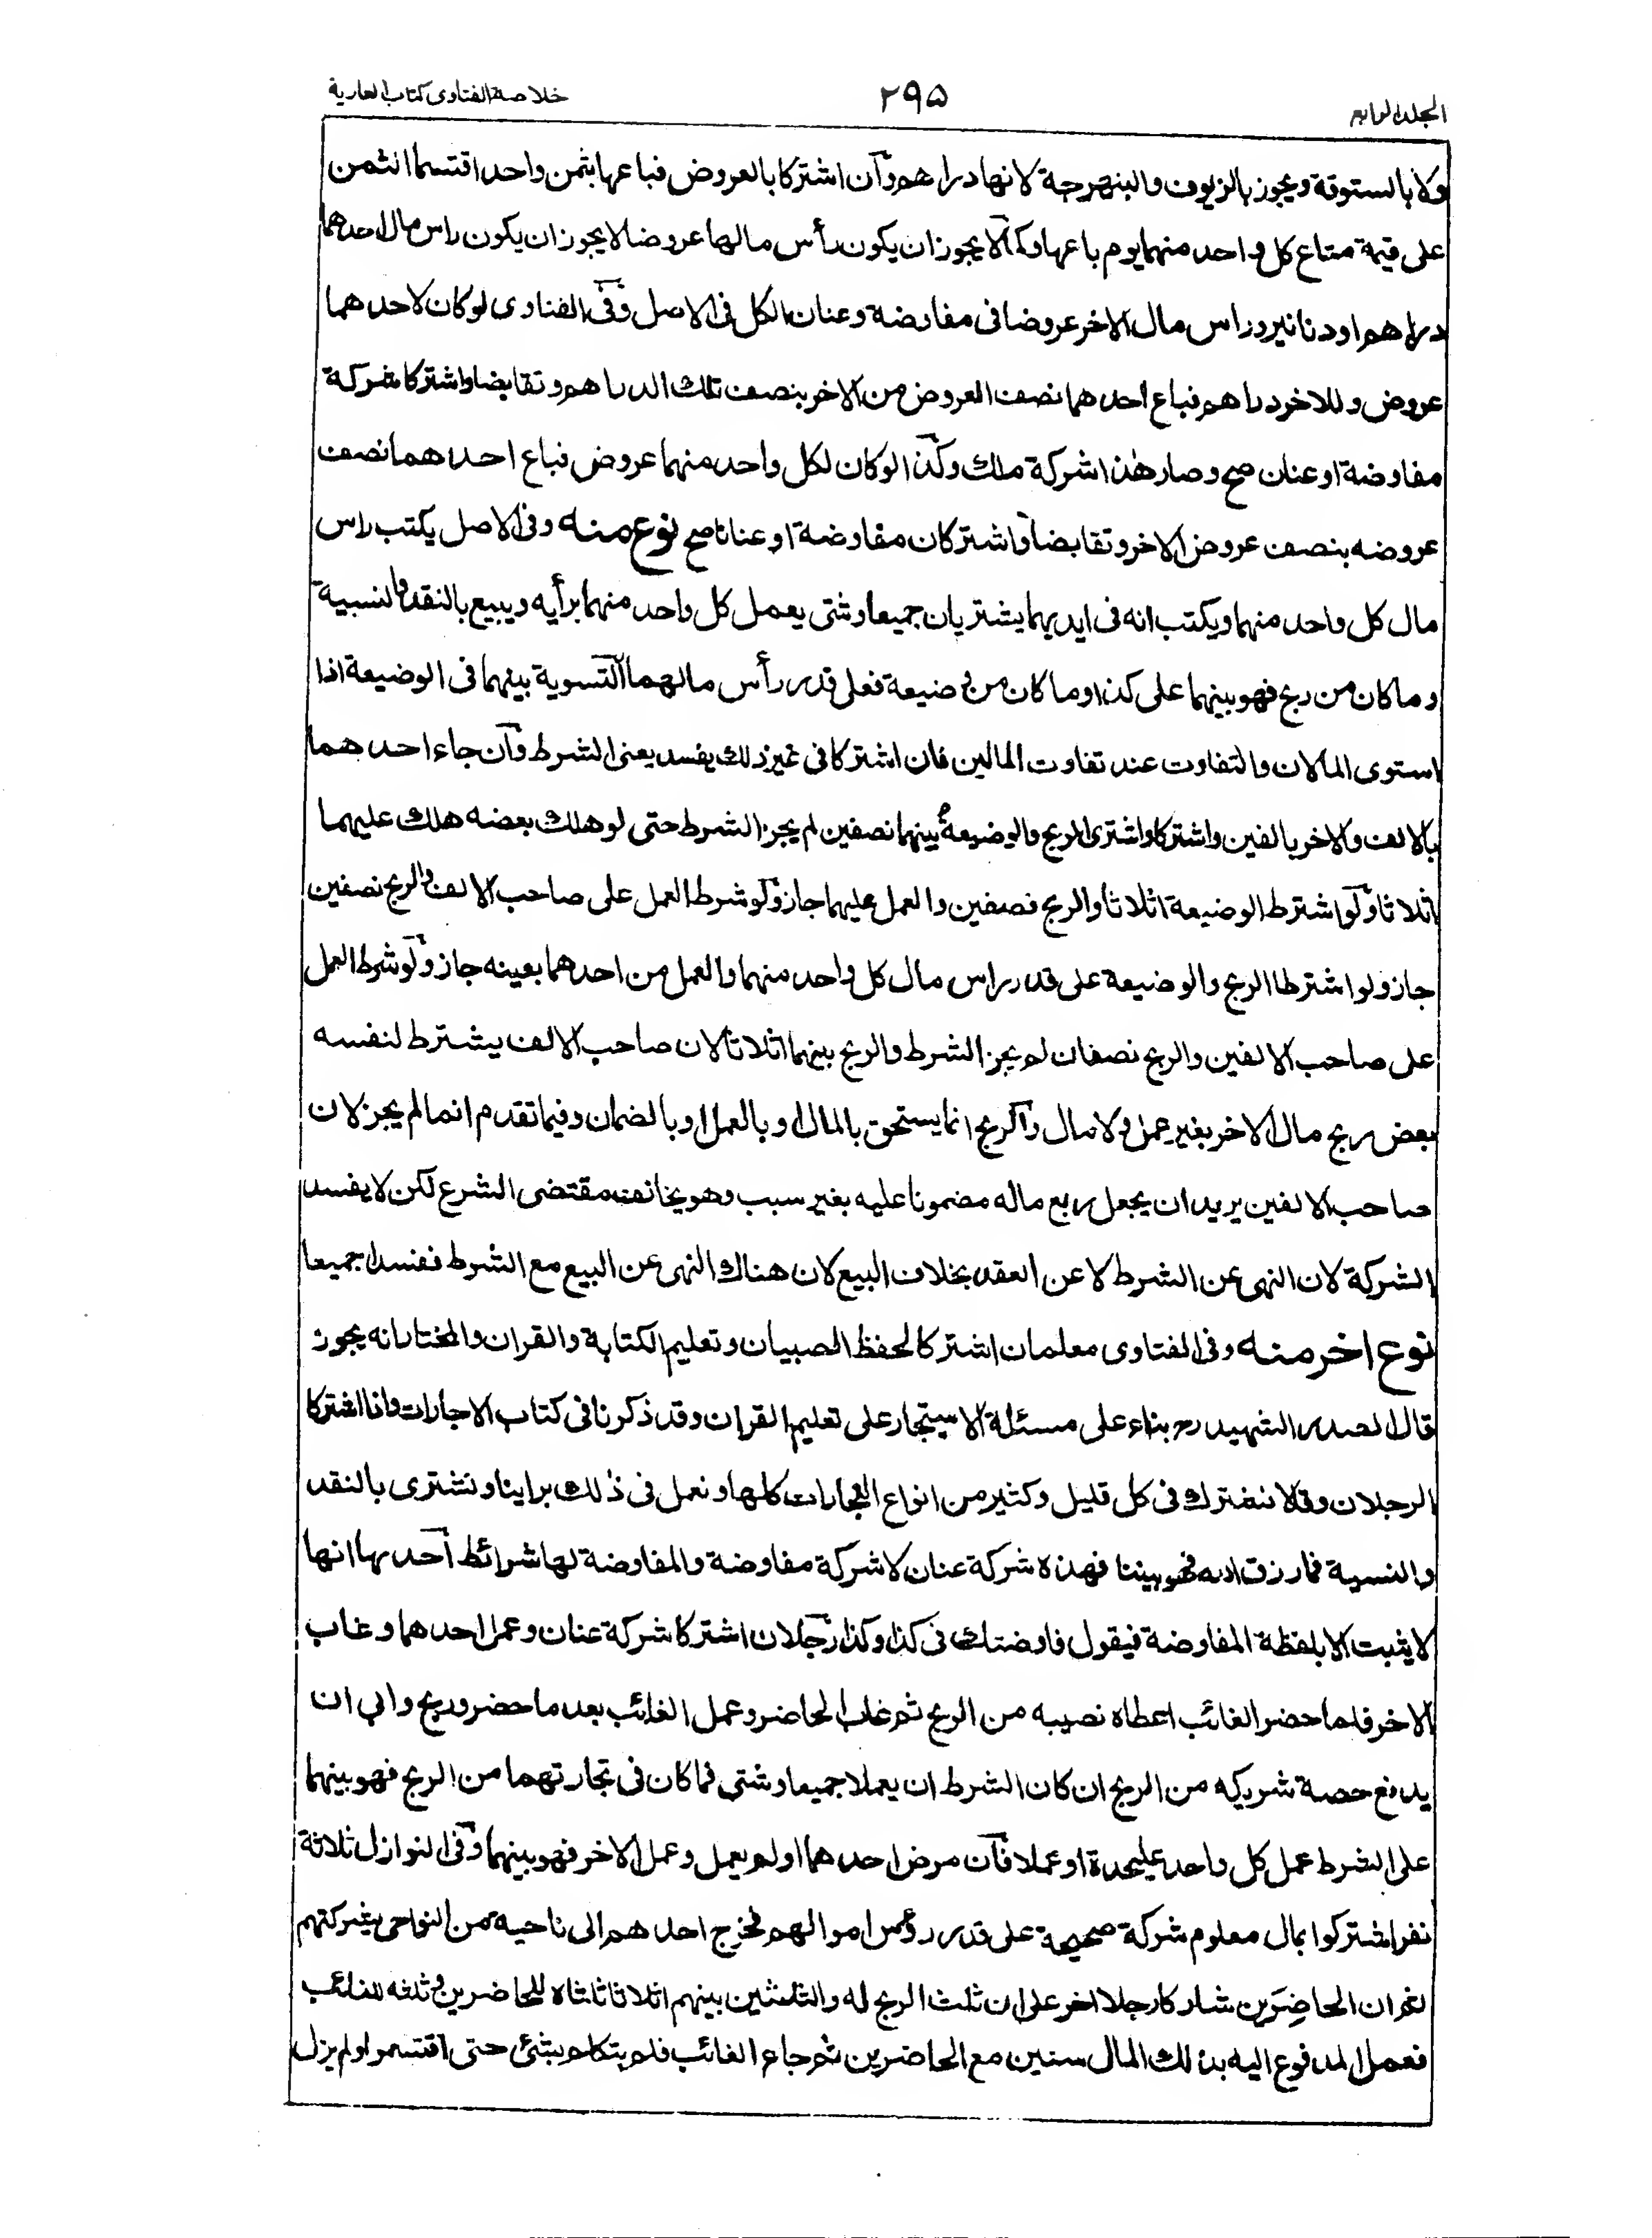 المجلد الرابع
۲۹۵
خلاصة الفتاوی کتاب العارية
ولا بالستوقة ويجوز بالزيوف والبنهرجة لانها دراهم وان اشتركا بالعروض فباعها بثمن واحد اقتسما الثمن
على قيمة متاع كل واحد منهما يوم باعها وكما لا يجوز ان يكون رأس مالهما عروضا لا يجوز ان يكون راس مال احدهما
دراهم او دنانير وراس مال الاخر عروضا فى مفاوضة وعنان الكل فى الاصل وفى الفتاوى لو كان لاحدهما
عروض وللاخر دراهم فباع احدهما نصف العروض من الاخر بنصف تلك الدراهم وتقابضا واشتركا شركة
مفاوضة او عنان صح وصار هذا شركة ملك وكذا لو كان لكل واحد منهما عروض فباع احدهما نصف
عروضه بنصف عروض الاخر وتقابضا واشتركان مفاوضة او عنانا صح نوع منه وفى الاصل يكتب راس
مال كل واحد منهما ويكتب انه فى ايديهما يشتريان جميعا وشتى يعمل كل واحد منهما برأيه ويبيع بالنقد والنسيية
وما كان من ربح فهو بينهما على كذا وما كان من وضيعة فعلى قدر رأس مالهما التسوية بينهما فى الوضيعة اذا
استوى المالان والتفاوت عند تفاوت المالين فان اشتركا فى غير ذلك يفسد يعنى الشرط وان جاء احدهما
بالالف والاخر بالفين واشتركا واشترى الربح والوضيعة بينهما نصفين لم يجز الشرط حتى لو هلك بعضه هلك عليهما
اثلاثا ولو اشترط الوضيعة اثلاثا والربح نصفين والعمل عليهما جاز ولو شرط العمل على صاحب الالف والربح نصفين
جاز ولو اشترطا الربح والوضيعة على قدر راس مال كل واحد منهما والعمل من احدهما بعينه جاز ولو شرط العمل
على صاحب الالفين والربح نصفان لم يجز الشرط والربح بينهما اثلاثا لان صاحب الالف يشترط لنفسه
بعض ربح مال الاخر بغير عمل ولا مال والربح انما يستحق بالمال او بالعمل او بالضمان وفيما تقدم انما لم يجز لان
صاحب الالفين يريد ان يجعل ربع ماله مضمونا عليه بغير سبب وهو يخالف مقتضى الشرع لكن لا يفسد
الشركة لان النهى عن الشرط لا عن العقد بخلاف البيع لان هناك النهى عن البيع مع الشرط ففسدا جميعا
نوع اخر منه وفى الفتاوى معلمان اشتركا لحفظ الصبيان وتعليم الكتابة والقران والمختار انه يجوز
قال الصدر الشهيد رح بناء على مسئلة الاستيجار على تعليم القران وقد ذكرنا فى كتاب الاجارات واذا اشتركا
الرجلان وقالا نشترك فى كل قليل وكثير من انواع التجارات كلها ونعمل فى ذلك براينا ونشترى بالنقد
والنسية فما رزق الله فهو بيننا فهذه شركة عنان لا شركة مفاوضة والمفاوضة لها شرائط احدبها انها
لا يثبت الا بلفظة المفاوضة فيقول فاوضتك فى كذا وكذا رجلان اشتركا شركة عنان وعمل احدهما وغاب
الاخر فلما حضر الغائب اعطاه نصيبه من الربح ثم غاب الحاضر وعمل الغائب بعد ما حضر وربح وابى ان
يدفع حصة شريكه من الربح ان كان الشرط ان يعملا جميعا وشتى فما كان فى تجارتهما من الربح فهو بينهما
على الشرط عمل كل واحد عليحدة او عملا فان مرض احدهما او لم يعمل وعمل الاخر فهو بينهما وفى النوازل ثلاثة
نفر اشتركوا بمال معلوم شركة صحيحة على قدر رؤس اموالهم فخرج احدهم الى ناحية من النواحى بشركتهم
ثم ان الحاضرين شاركا رجلا اخر على ان ثلث الربح له والثلثين بينهم اثلاثا ثلثاه للحاضرين وثلثه للغائب
فعمل المدفوع اليه بذلك المال سنين مع الحاضرين ثم جاء الغائب فلم يتكلم بشئ حتى اقتسموا ولم يزل